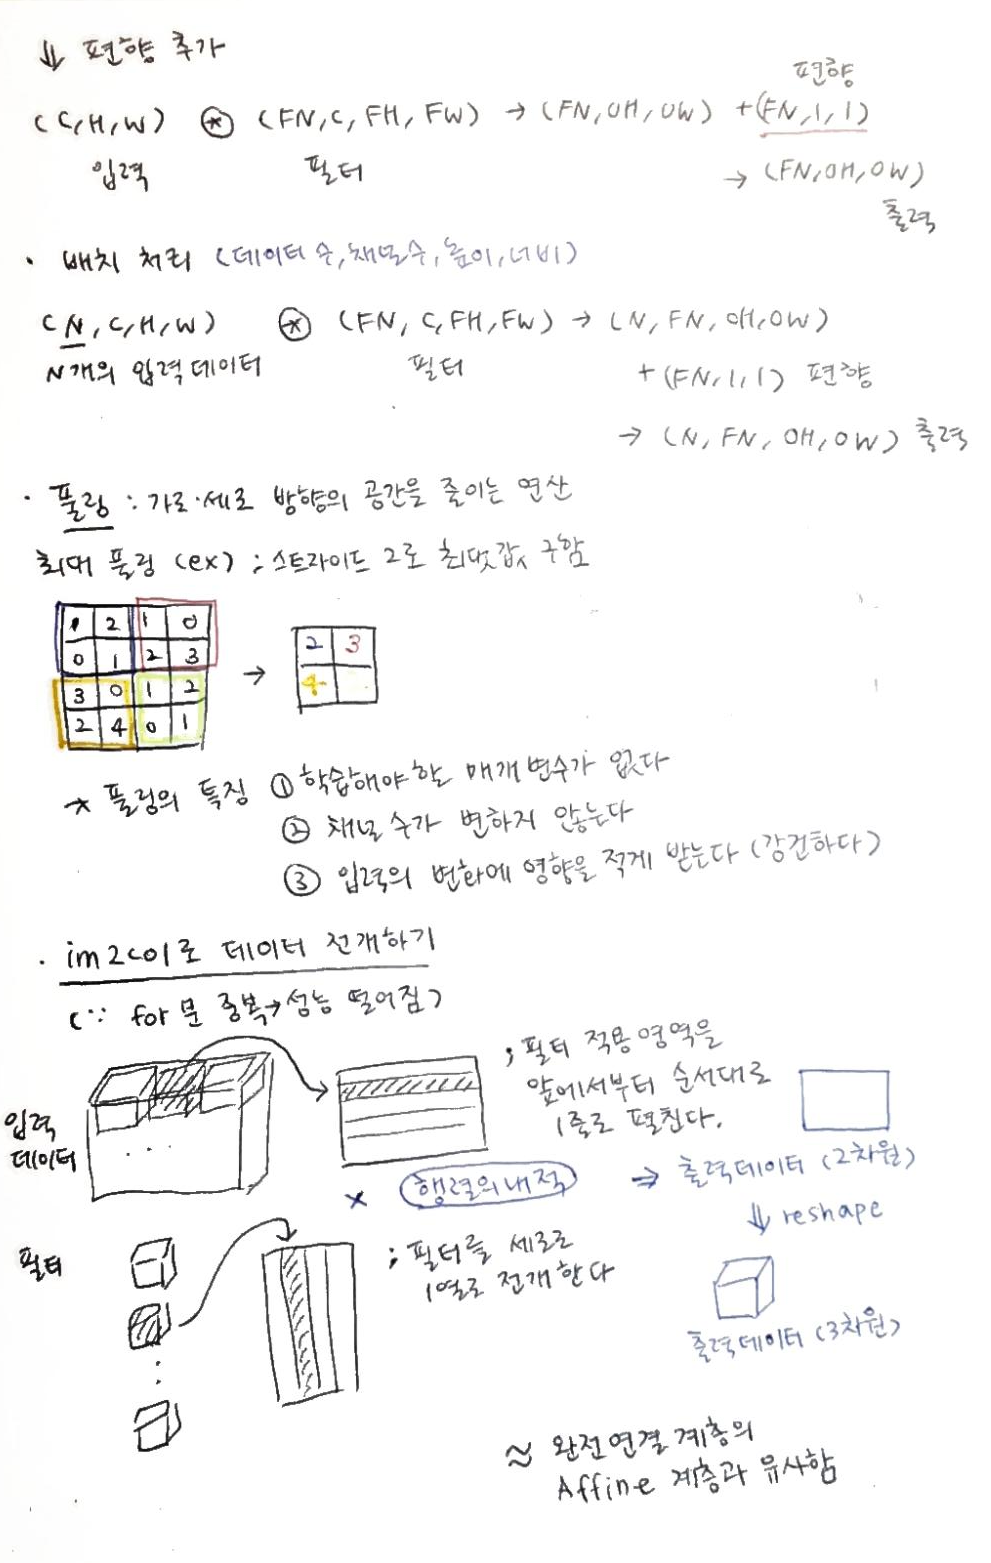 ⇓ 편향 추가
편향
(C,H,W) ⊛ (FN,C,FH,FW) → (FN,OH,OW) +(FN,1,1)
입력 필터 → (FN,OH,OW)
출력
· 배치 처리 (데이터 수,채널수,높이,너비)
(N,C,H,W) ⊛ (FN,C,FH,FW) → (N,FN,OH,OW)
N개의 입력데이터 필터 +(FN,1,1) 편향
→ (N,FN,OH,OW) 출력
· 풀링 : 가로·세로 방향의 공간을 줄이는 연산
최대 풀링 (ex) ; 스트라이드 2로 최댓값 구함
1 2 1 0
0 1 2 3
3 0 1 2
2 4 0 1
→
2 3
4
* 풀링의 특징 ① 학습해야할 매개변수가 없다
② 채널 수가 변하지 않는다
③ 입력의 변화에 영향을 적게 받는다 (강건하다)
· im2col로 데이터 전개하기
(∵ for문 중복→성능 떨어짐)
; 필터 적용영역을
앞에서부터 순서대로
1줄로 펼친다.
입력
데이터
× 행렬의내적 ⇒ 출력데이터 (2차원)
⇓ reshape
필터
; 필터를 세로로
1열로 전개한다
출력데이터 (3차원)
≈ 완전연결계층의
Affine 계층과 유사함